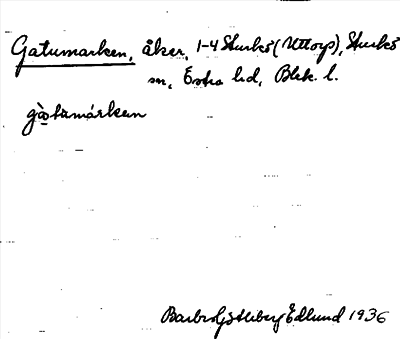 Gatumarken, åker, 1-4 Sturkö (Uttorp), Sturkö
sn, Östra hd, Blek. l.
gàtumárken
Barbro Götlberg Edlund 1936